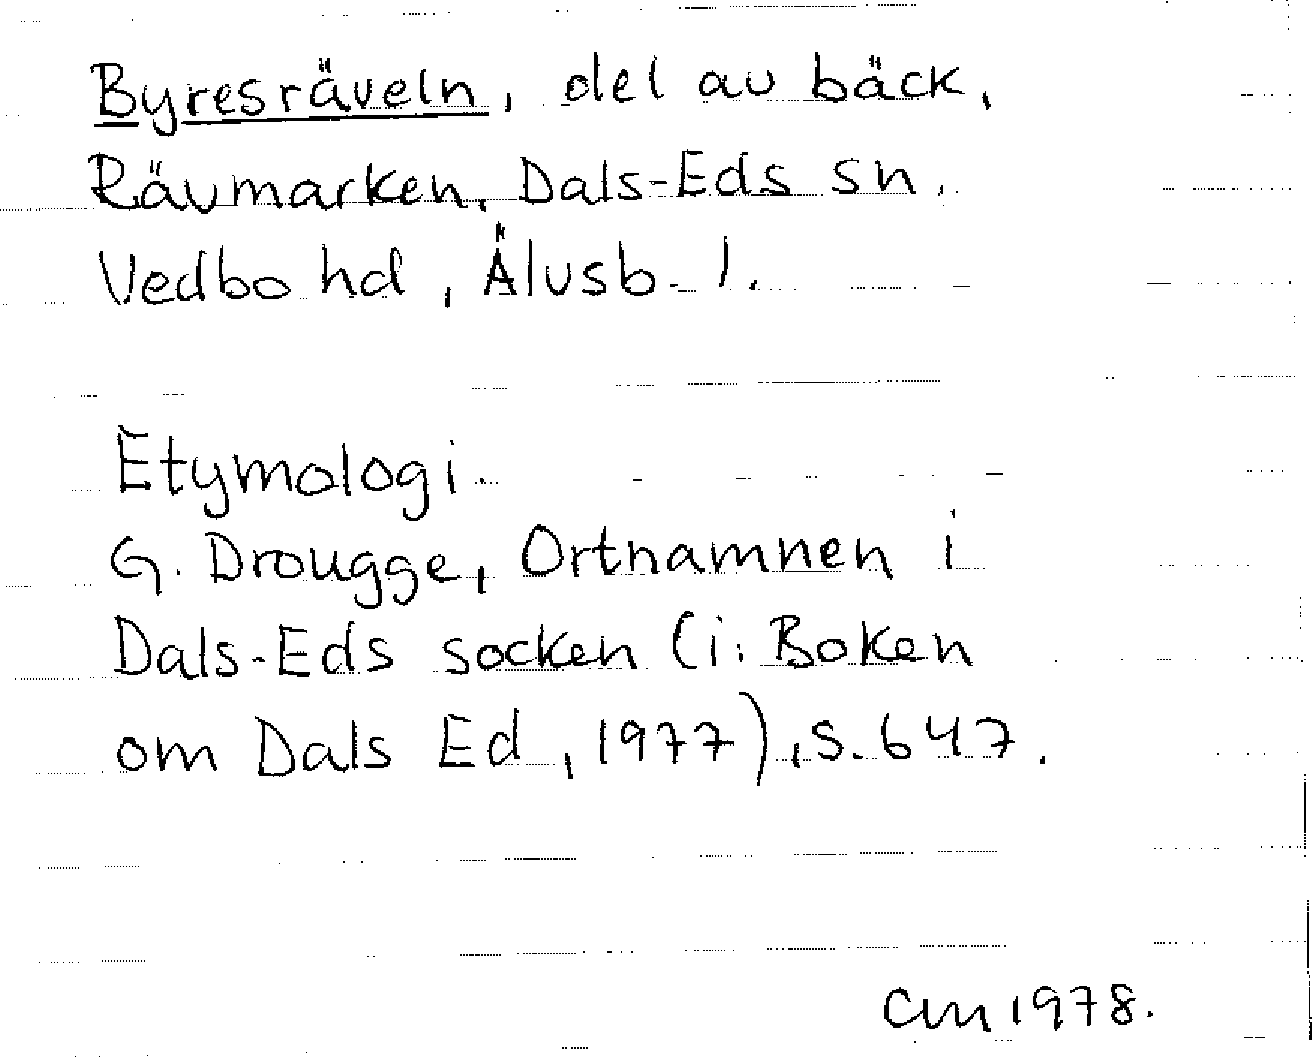 Byresräveln, del av bäck,
Rävmarken, Dals-Eds sn,
Vedbo hd, Älvsb. l.
Etymologi
G. Drougge, Ortnamnen i
Dals-Eds socken (i: Boken
om Dals Ed, 1977), s. 647.
CM 1978.